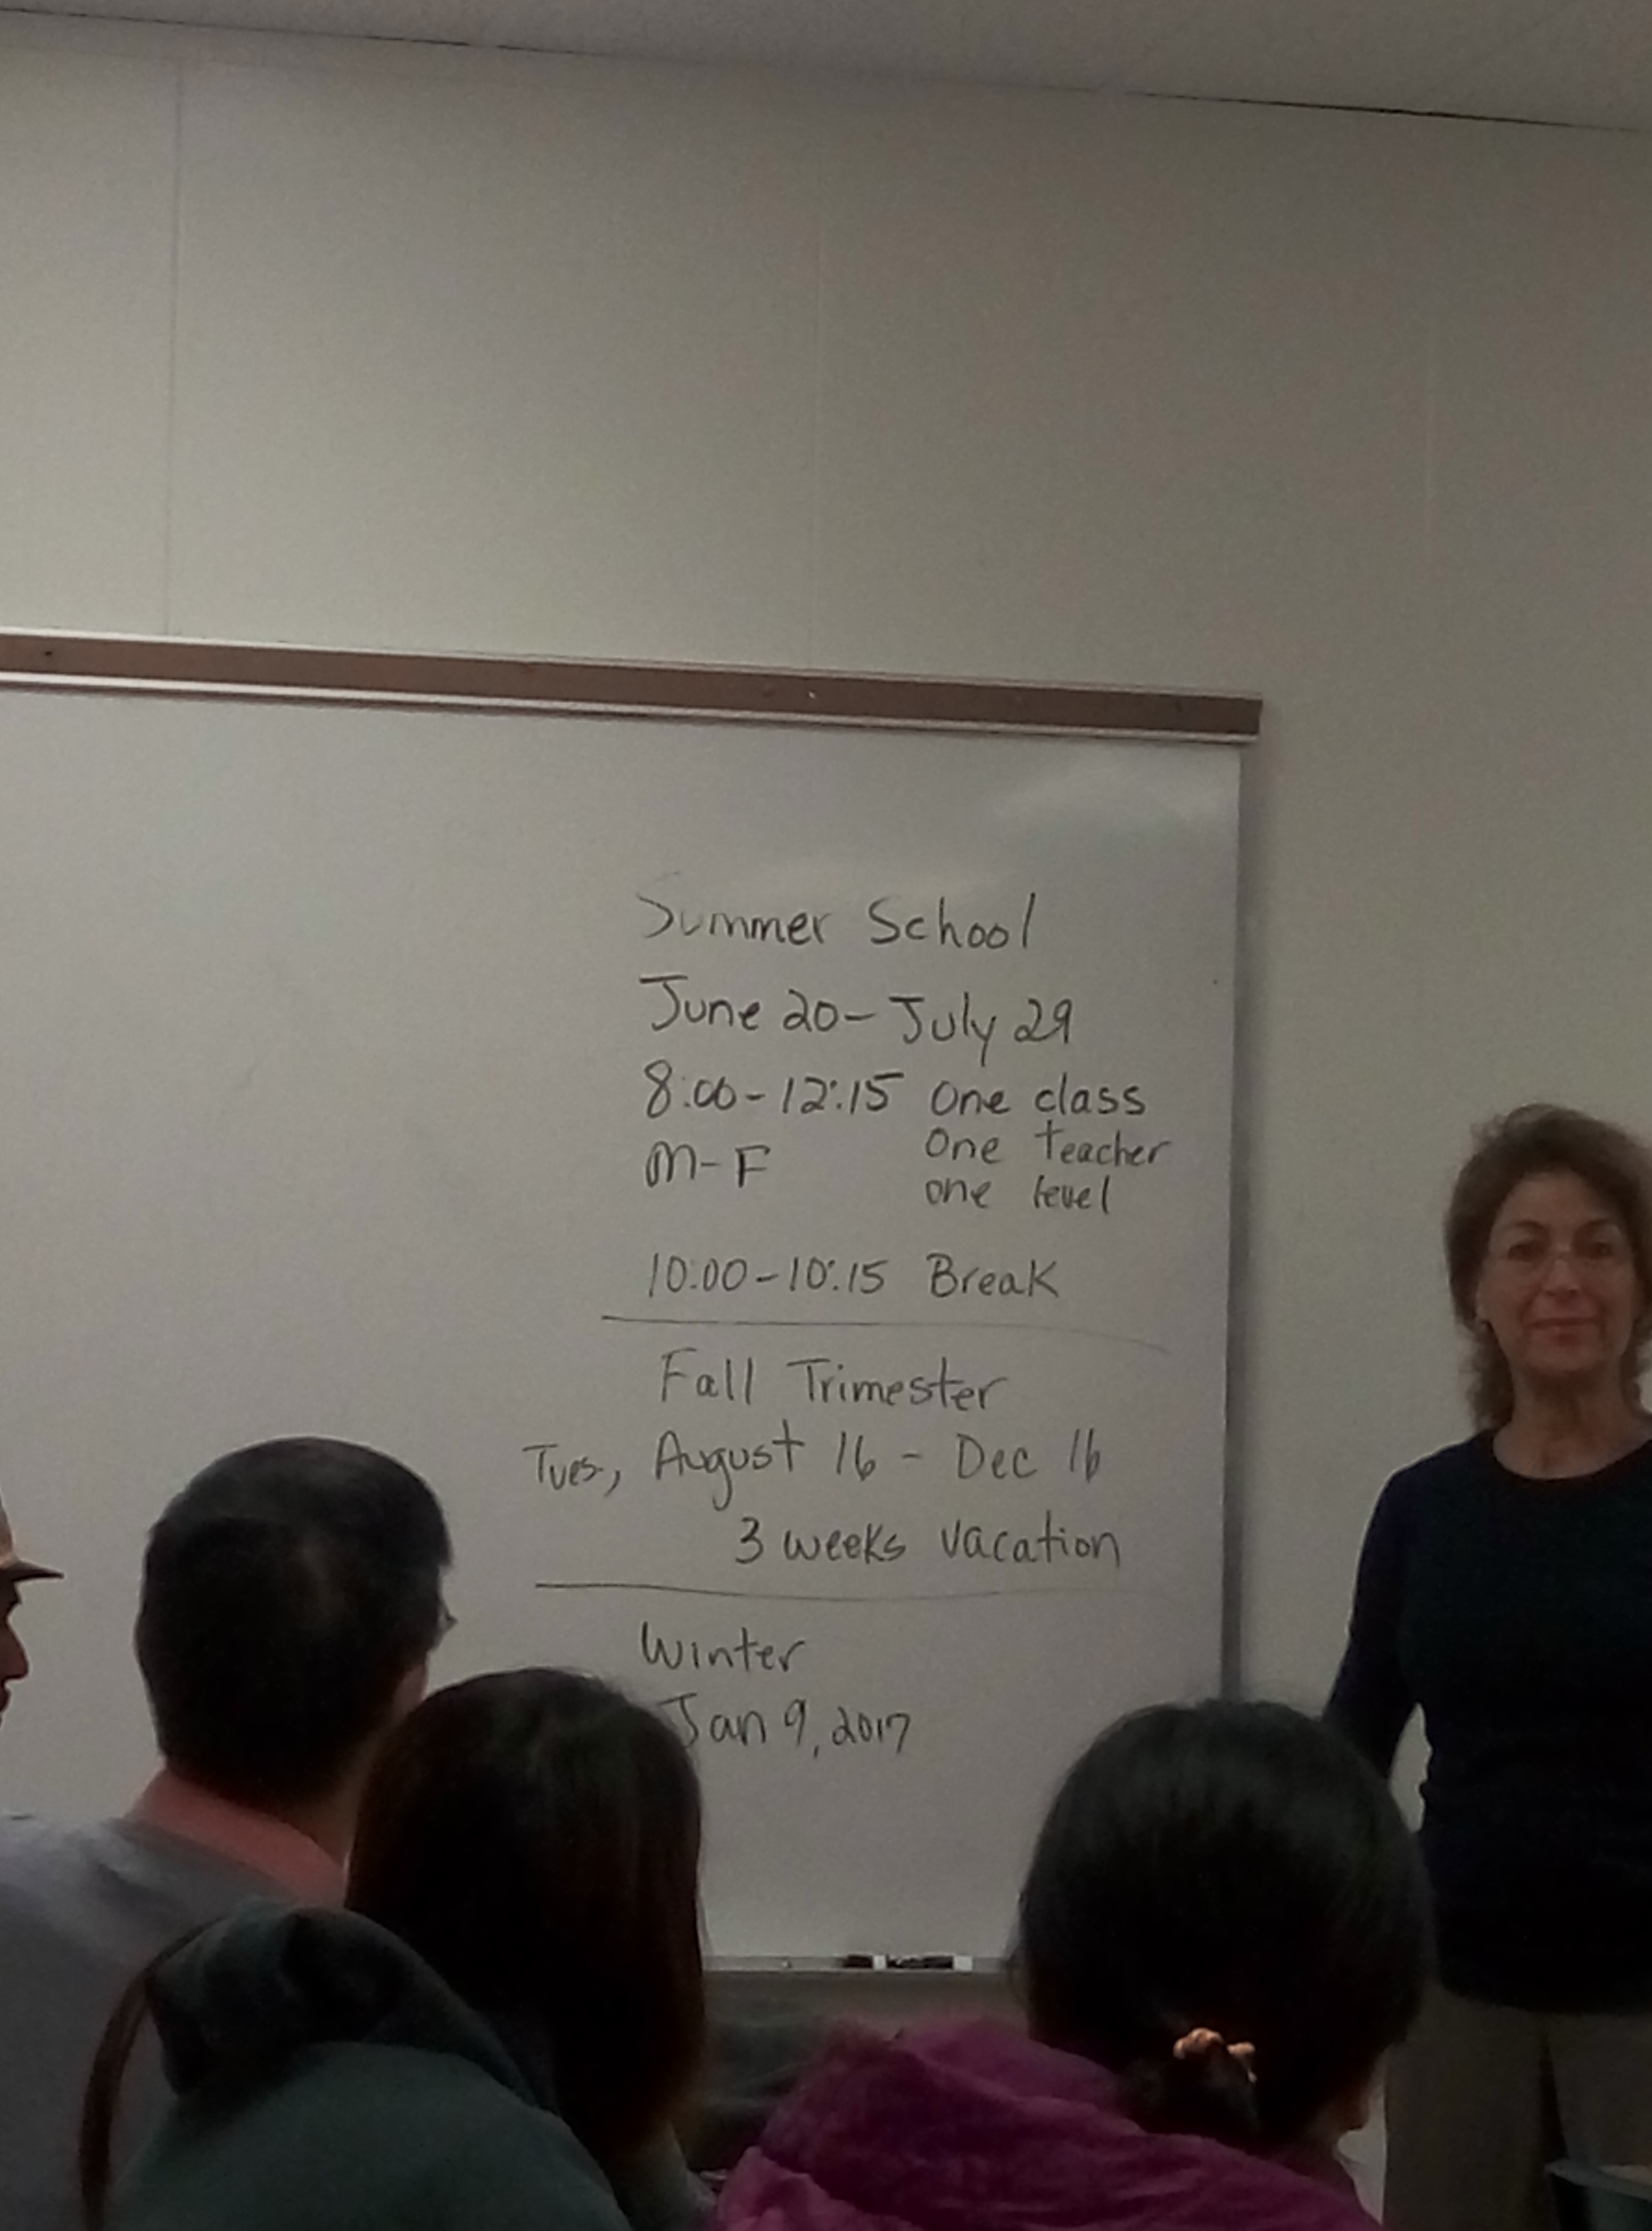 Summer School
June 20 - July 29
8:00 - 12:15 One class
One teacher
M - F
one level
10:00 - 10:15 Break
Fall Trimester
Tues, August 16 - Dec 16
3 weeks vacation
Winter
Jan 9, 2017